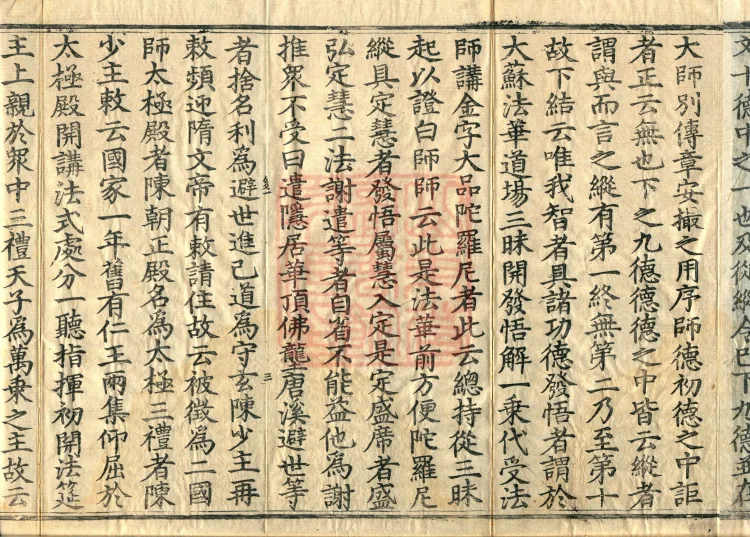 文十德中之一也歿從總合已下九德並在
大師別傳章安撮之用序師德初德之中詎
者正云無也下之九德德德之中皆云縱者
謂與而言之縱有第一終無第二乃至第十
故下結云唯我智者具諸功德發悟者謂於
大蘇法華道場三昧開發悟解一乘代受法
師講金字大品陀羅尼者此云總持從三昧
起以證白師師云此是法華前方便陀羅尼
縱具定慧者發悟屬慧入定是定盛席者盛
弘定慧二法謝遣等者自省不能益他為謝
推眾不受曰遣隱居華頂佛壟唐溪避世等
者捨名利為避世進己道為守玄陳少主再
敕頻迎隋文帝有敕請住故云被徵為二國
師太極殿者陳朝正殿名為太極三禮者陳
少主敕云國家一年舊有仁王兩集仰屈於
太極殿開講法式處分一聽指揮初開法筵
主上親於眾中三禮天子為萬乘之主故云
三